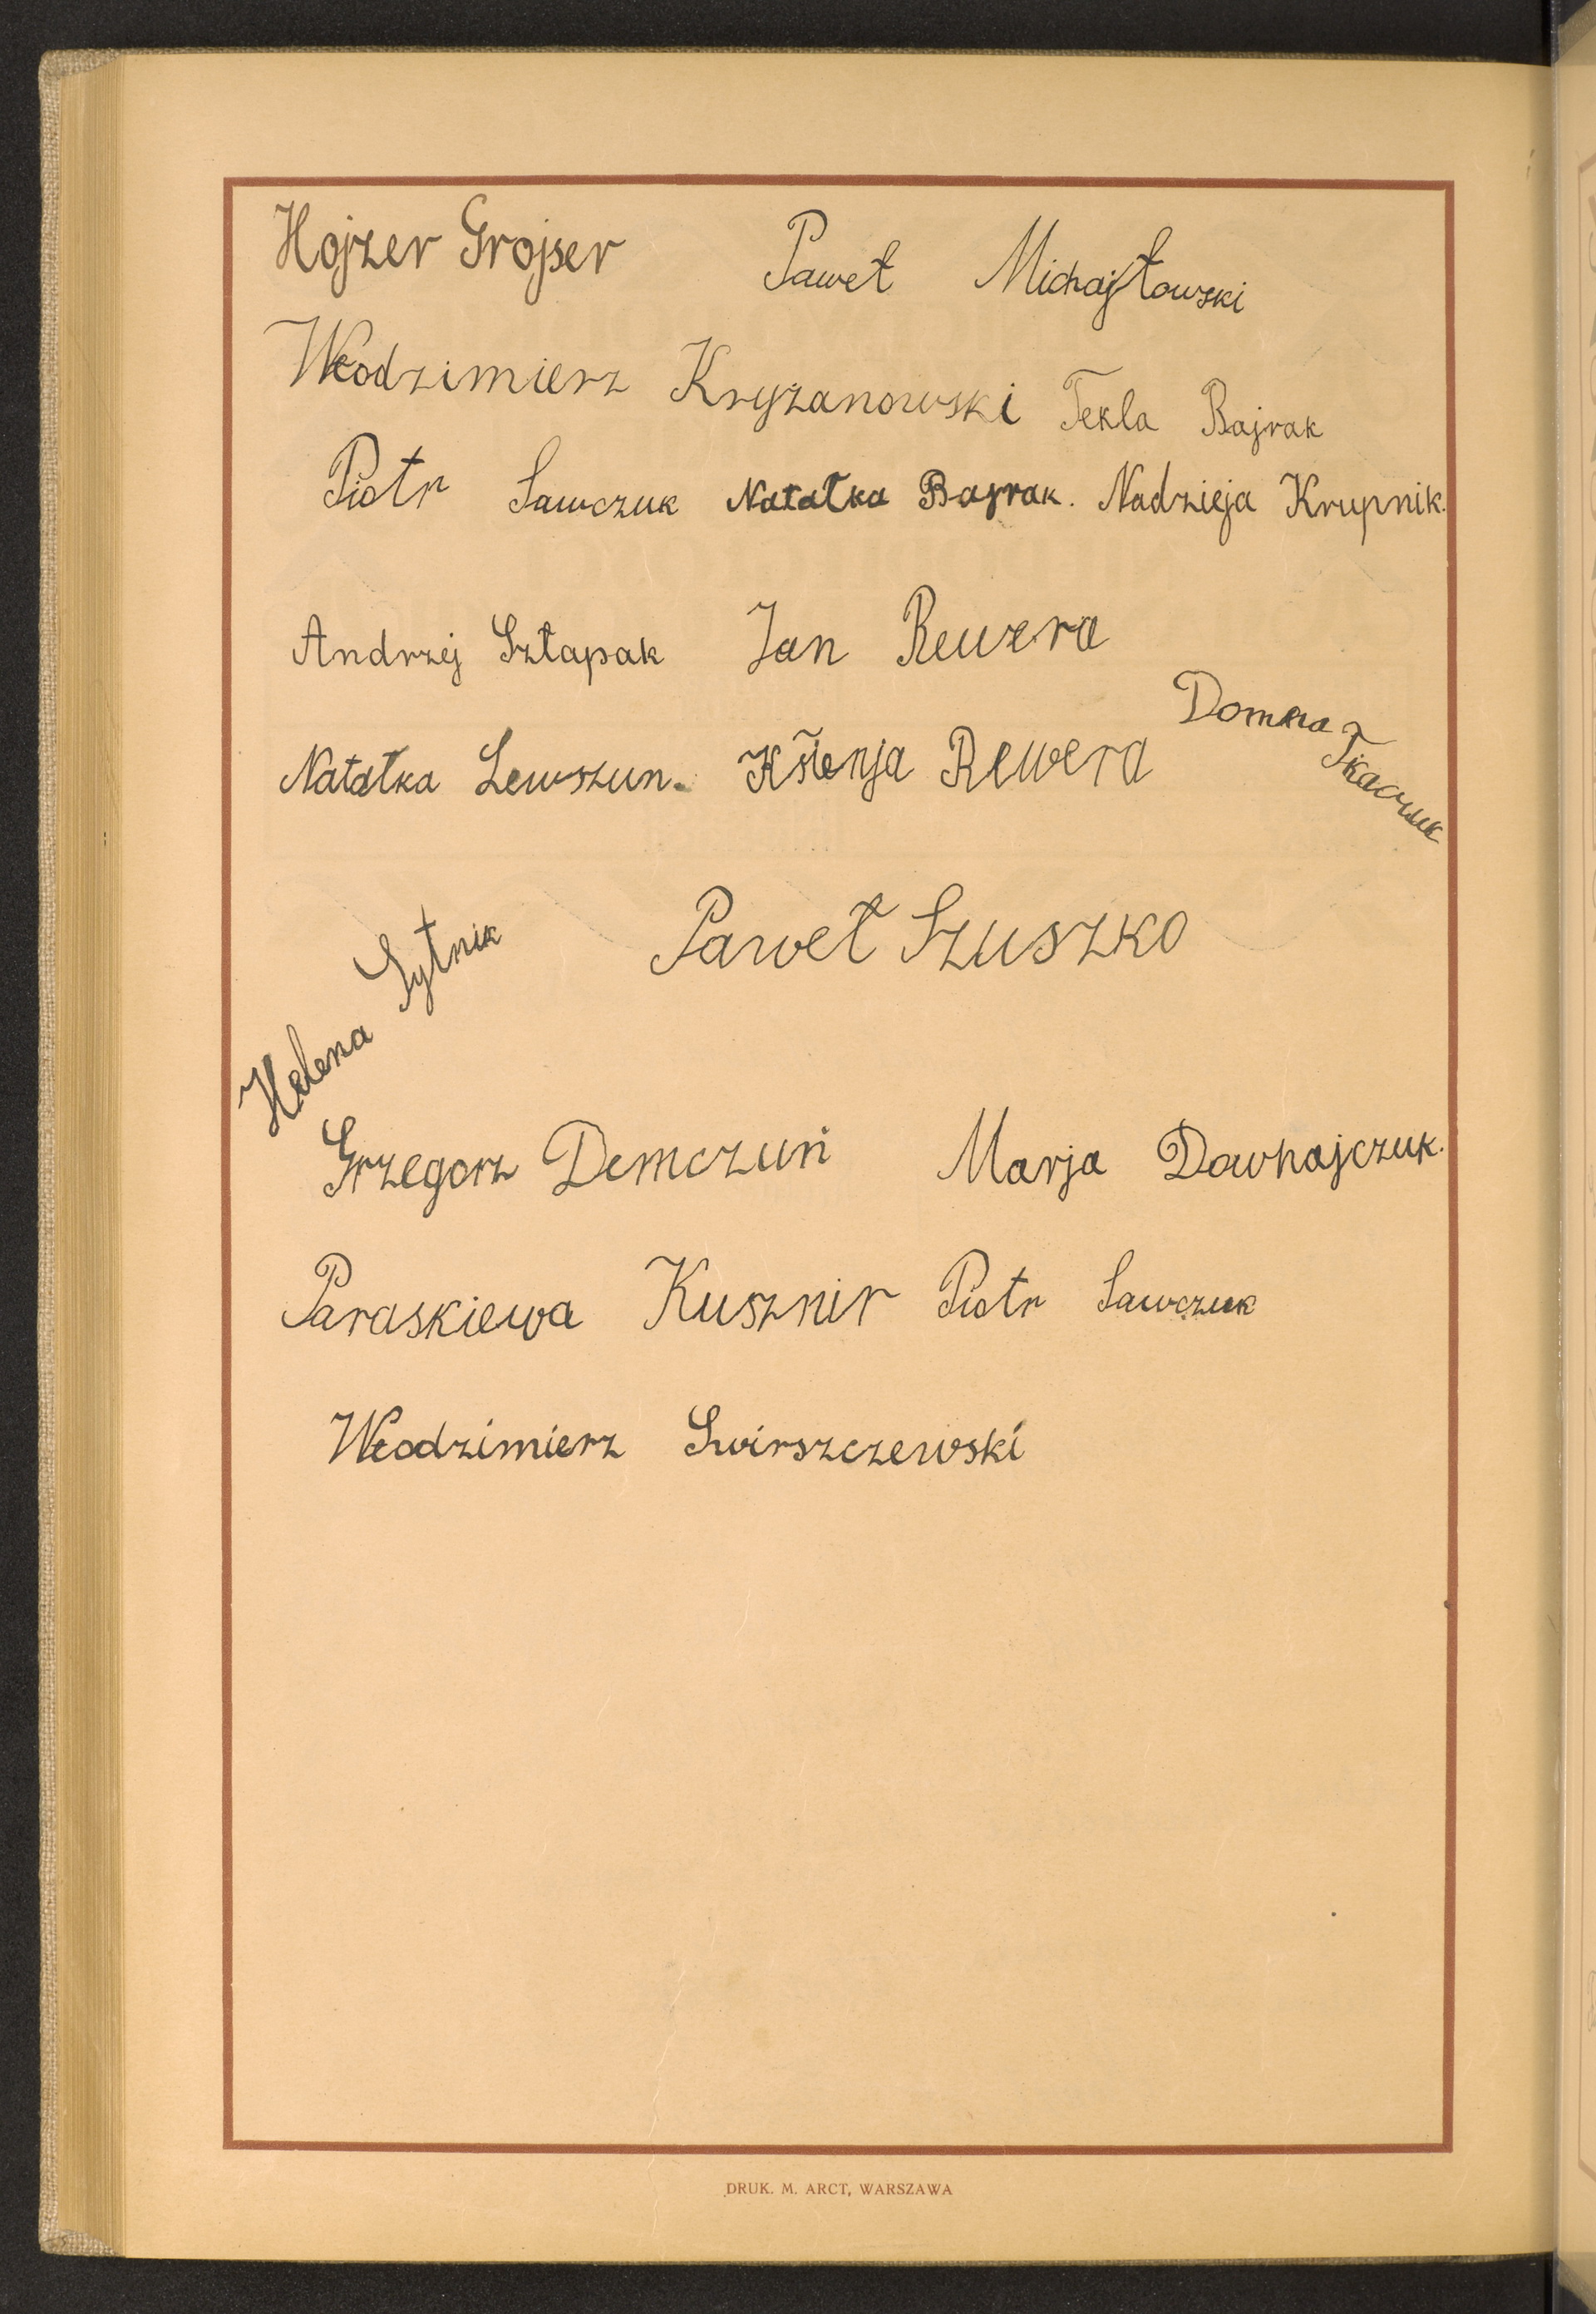 Hojzer Grojser Paweł Michajłowski
Włodzimierz Kryżanowski Tekla Bajrak
Piotr Sawczuk Natałka Bajrak. Nadzieja Krupnik.
Andrzej Sztapak Jan Rewera
Natałka Lewszun. Kśenja Rewera Domna Tkaczuk
Helena Sytnik Paweł Szuszko
Grzegorz Demczuń Marja Dowhajczuk.
Paraskiewa Kusznir Piotr Sawczuk
Włodzimierz Swirszczewski
DRUK. M. ARCT, WARSZAWA